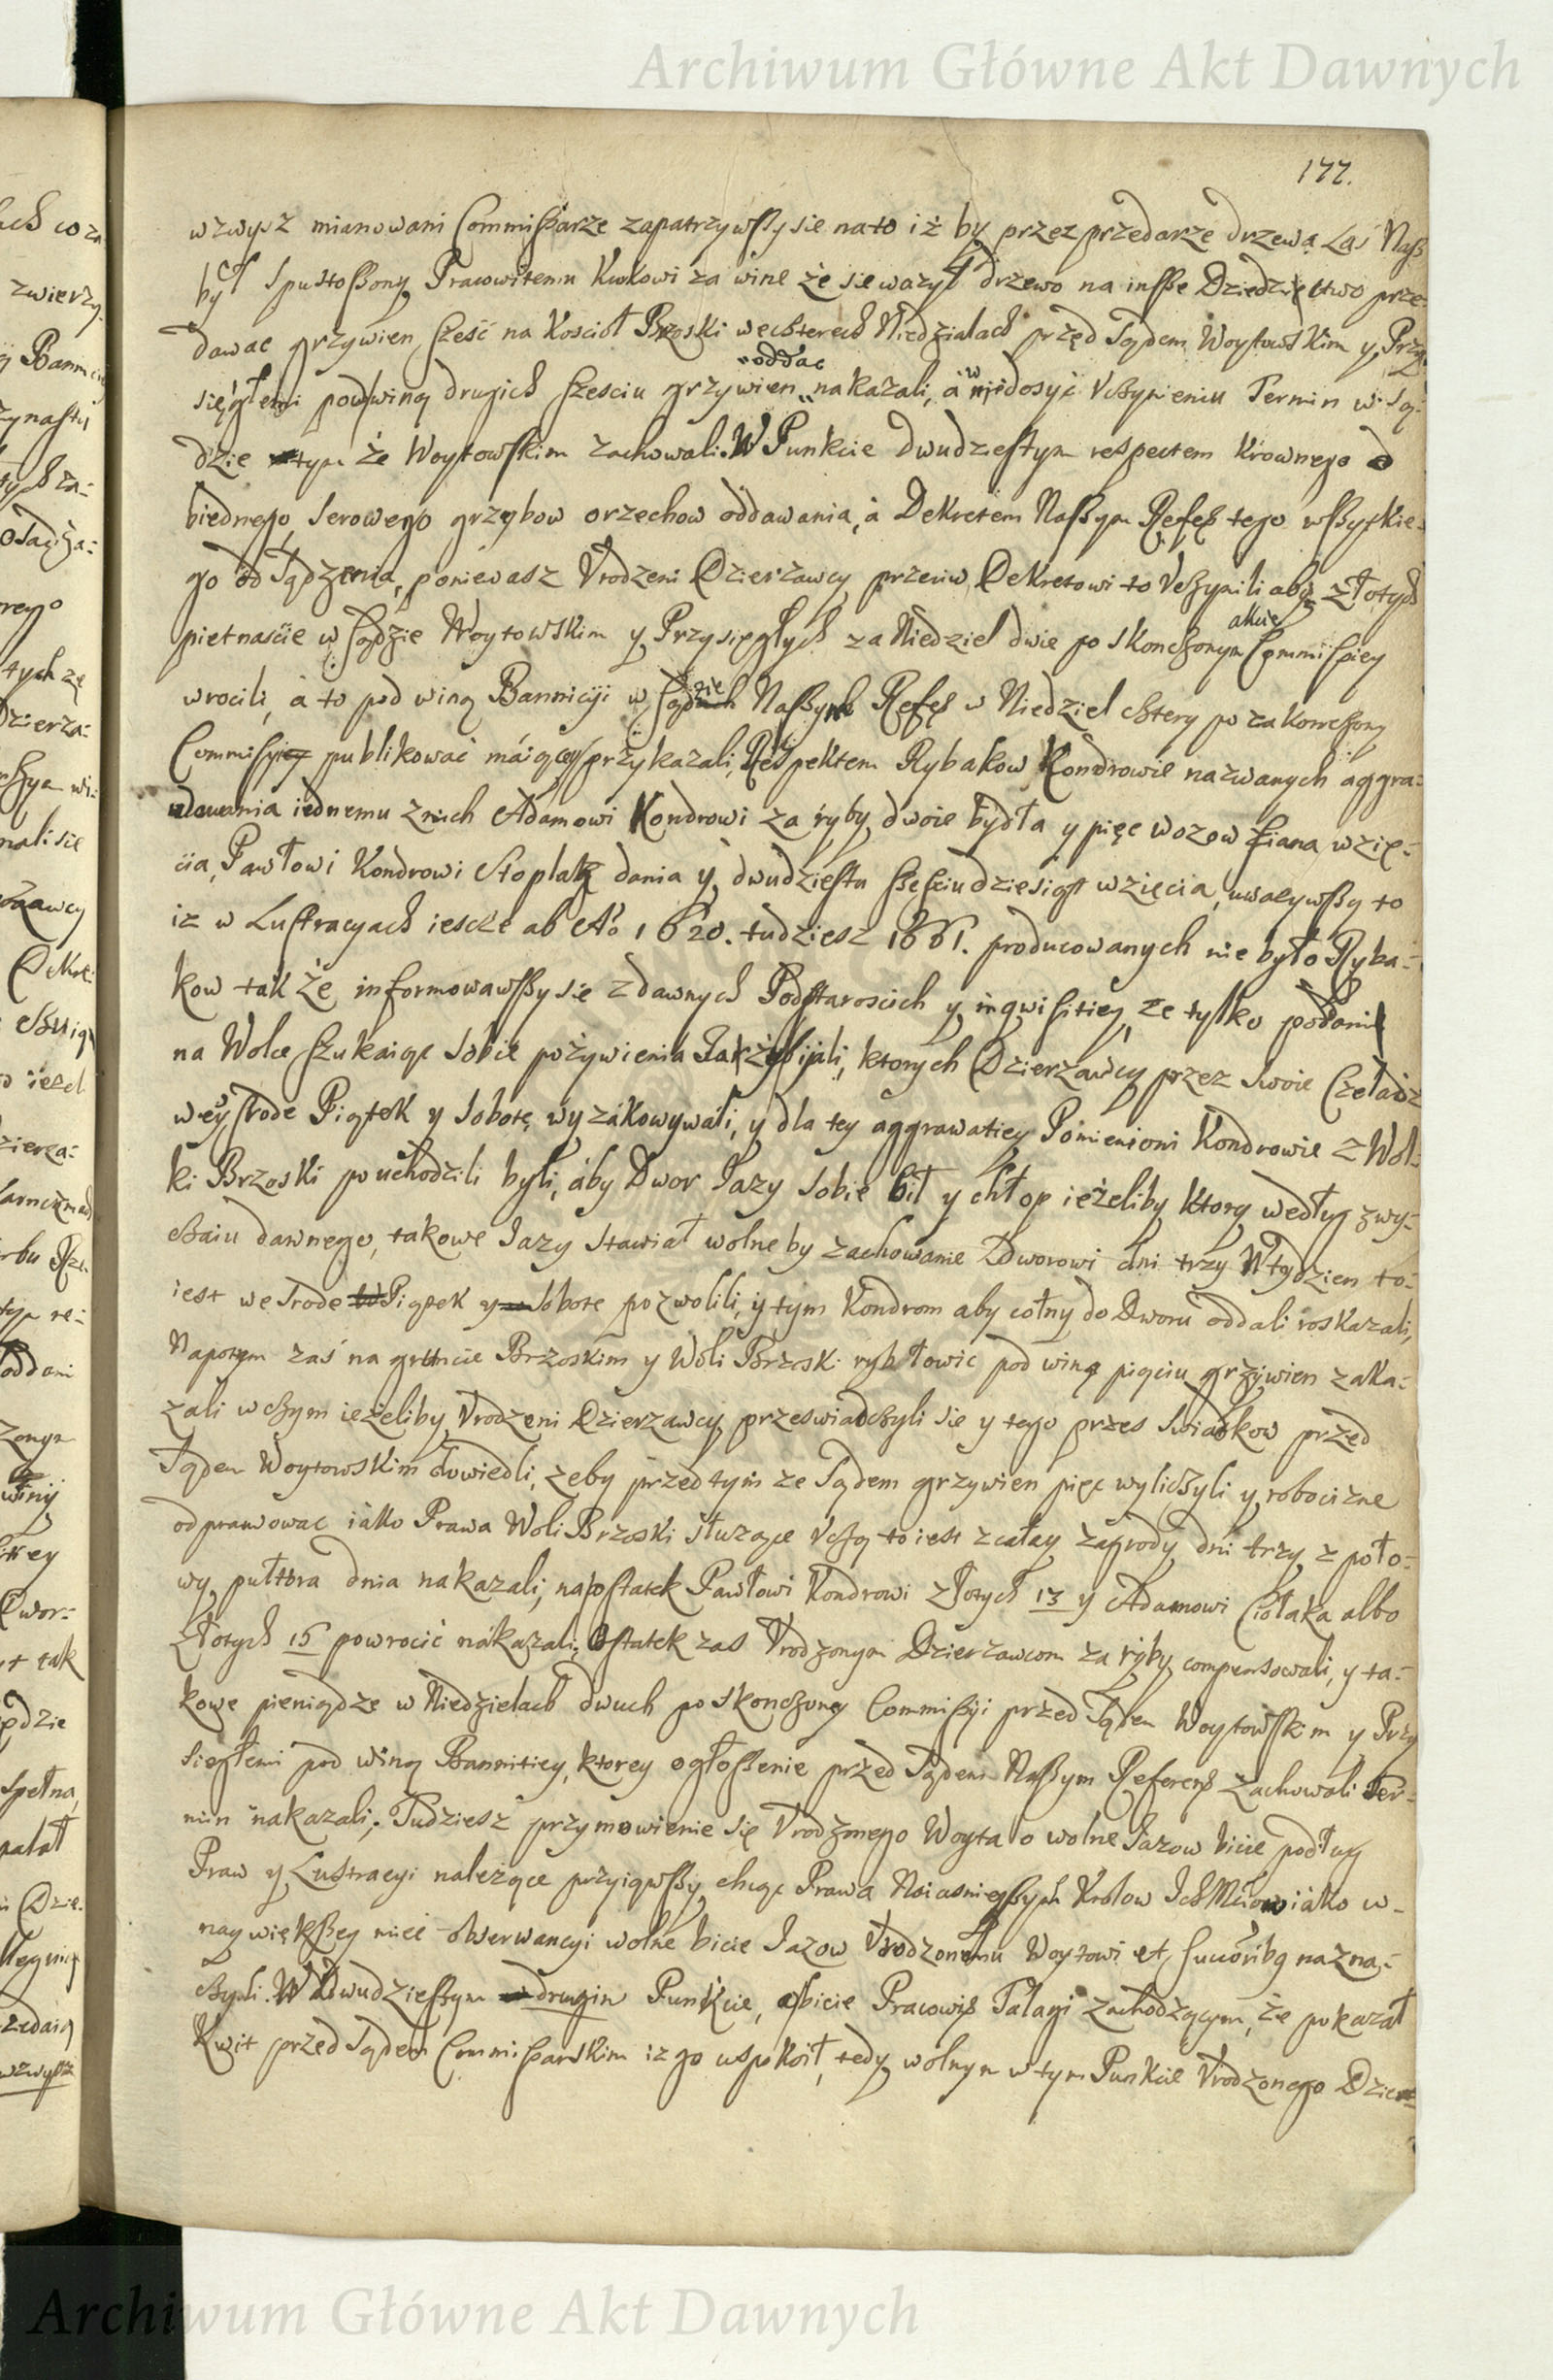 Archiwum Główne Akt Dawnych
177.
wzwysz mianowani Commissarze zapatrzywszy sie na to iż by przez przedarze drzewa Las Nasz
był Spustoszony Pracowitemu Kukowi za wine że sie ważył drzewo na insze Dziedzictwo prze-
dawac grzywien sześć na Kosciół Brzoski wechterech Niedzialach przed Sądem Woytowskim y Przy
sięgłemi pod winą drugich szesciu grzywien oddac nakazali, á w niedosyć Vchynieniu Termin w Są-
dzie tym że Woytowskim zachowali. W Punkcie dwudziestym respectem Krownego o
biednego Serowego grzybow orzechow oddawania, á Dekretem Naszym Refes tego wszytkie-
go od Sądzenia, poniewasz Vrodzeni Dzierzawcy przeciw Dekretowi to Vchynili aby złotych
pietnaście w Sądzie Woytowskim y Przysięgłych za Niedziel dwie po skonchonym akcie Commissiey
wrocili, á to pod winą Bannicyi w Sądzie Naszym Refes w Niedziel chtery po zakonchony
Commissyiey publikować máiącey przykazali, Respektem Rybakow Kondrowie nazwanych aggra-
wowania iednemu znich Adamowi Kondrowi za ryby dwoie bydła y pięc wozow siana wzię-
cia, Pawłowi Kondrowi Sto plag dania y dwudziestu sześciudziesiąt wzięcia, uwazywszy to
iz w Lustracyach iescze ab Aō 1620. tudziesz 1661. producowanych nie było Ryba-
kow tak że informowawszy sie z dawnych Podstaroscich y inqwisitiey, ze tylko poddani
na Wolce szukaiąc sobie pożywienia Iazy bijali, ktorych Dzierżawcy przez Swoie Czeladz
wey srode Piątek y Sobotę wyzákowywali, y dla tey aggrawatiey Pomienioni Kondrowie z Wol-
ki Brzoski pouchodzili byli, áby Dwor Iazy sobie bił y chłop ieżeliby ktory według zwy-
chaiu dawnego, takowe Iazy stawiał wolne by zachowanie Dworowi dni trzy W tydzien to-
iest we Srode Piątek y Sobote pozwolili, y tym Kondrom aby cołny do Dworu oddali roskazali,
Napotym zaś na gruncie Brzoskim y Woli Brzoski ryb łowic pod winą pięciu grzywien zaka-
zali wchym ieżeliby Vrodzeni Dzierzawcy przeswiadchyli sie y tego przes Swiadkow przed
Sądem Woytowskim dowiedli, zeby przed tym ze Sądem grzywien pięc wylichyli y robocizne
odprawowac iáko Prawa Woli Brzoski słuzące Vchą to iest z całey zagrody dni trzy z poło-
wy pułtora dnia nakazali, na ostatek Pawłowi Kondrowi złotych 13 y Adamowi Ciołaka albo
złotych 15 powrocić nákazali, Ostatek zas Vrodzonym Dzierzawcom za ryby compensowali, y ta-
kowe pieniądze w Niedzielach dwuch po skonchoney Commissyi przed Sądem Woytowskim y Przy
sięgłemi pod winą Bannitiey, ktorey ogłoszenie przed Sądem Naszym Referens zachowali Ter-
min nakazali; Tudziesz przymowienie się Vrodzonego Woyta o wolne Iazow bicie podług
Praw y Lustracyi należące przyiąwszy, chcąc Prawa Nsiasnieyszych Krolow Ich Mciow iáko w-
naywiększey mieć obserwancyi wolne bicie Iazow Vrodzonemu Woytowi et Succoribg nazna-
chyli. W Dwudziesszym drugim Punkcie, o bicie Pracowis Tałagi zachodzącym, że pokazał
Kwit przed Sądem Commissarskim iz go uspokoił, tedy wolnym w tym Punkcie Vrodzonego Dzier
Archiwum Główne Akt Dawnych